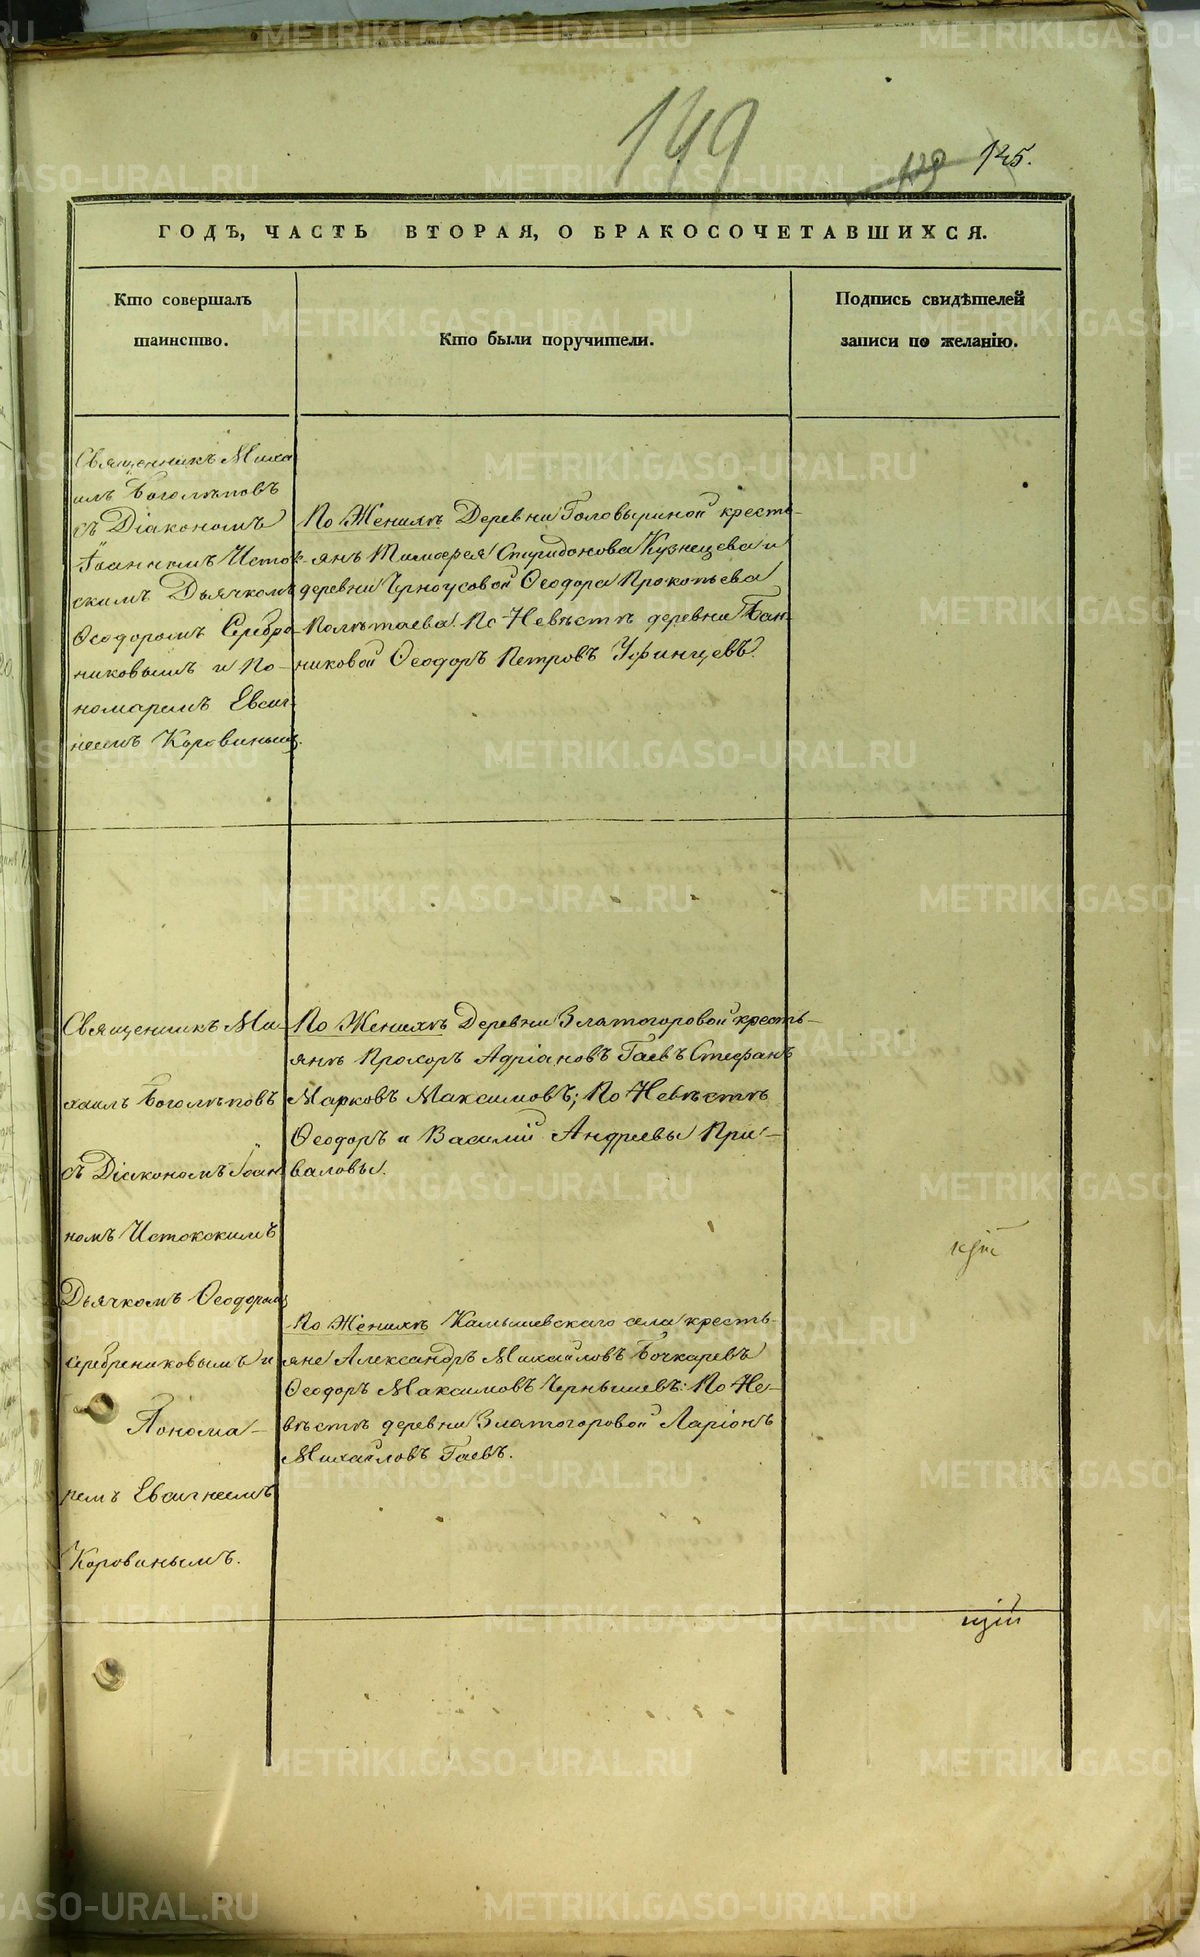 149
129 145.
ГОДЪ, ЧАСТЬ ВТОРАЯ, О БРАКОСОЧЕТАВШИХСЯ.
Кто совершалъ
таинство.
Кто были поручители.
Подпись свидѣтелей
записи по желанію.
Священникъ Миха
илъ Боголѣповъ
съ Діакономъ
Іоанномъ Исток
скимъ Дьячкомъ
Ѳеодоромъ Серебре
никовымъ и По-
номаремъ Евсиг-
неемъ Коровинымъ.
По Женихѣ Деревни Головыриной кресть-
янъ Тимоѳея Спиридонова Кузнецева и
деревни Черноусовой Ѳеодора Прокопьева
Полѣтаева. По Невѣстѣ деревни Бан-
никовой Ѳеодоръ Петровъ Уфинцевъ.
Священникъ Ми-
хаилъ Боголѣповъ
съ Діакономъ Іоан
номъ Истокскимъ
Дьячкомъ Ѳеодоромъ
Серебрениковымъ и
Понома-
ремъ Евсигнеемъ
Коровинымъ.
По Женихѣ Деревни Златогоровой кресть-
янѣ Прохоръ Адріановъ Гаевъ Стефанъ
Марковъ Максимовъ; По Невѣстѣ
Ѳеодоръ и Василий Андреевы При-
валовы.
По Женихѣ Камышевскаго села кресть-
яне Александръ Михайловъ Бочкаревъ
Ѳеодоръ Максимовъ Чернышевъ: По Не-
вѣстѣ деревни Златогоровой Ларіонъ
Михайловъ Гаевъ.
METRIKI.GASO-URAL.RU